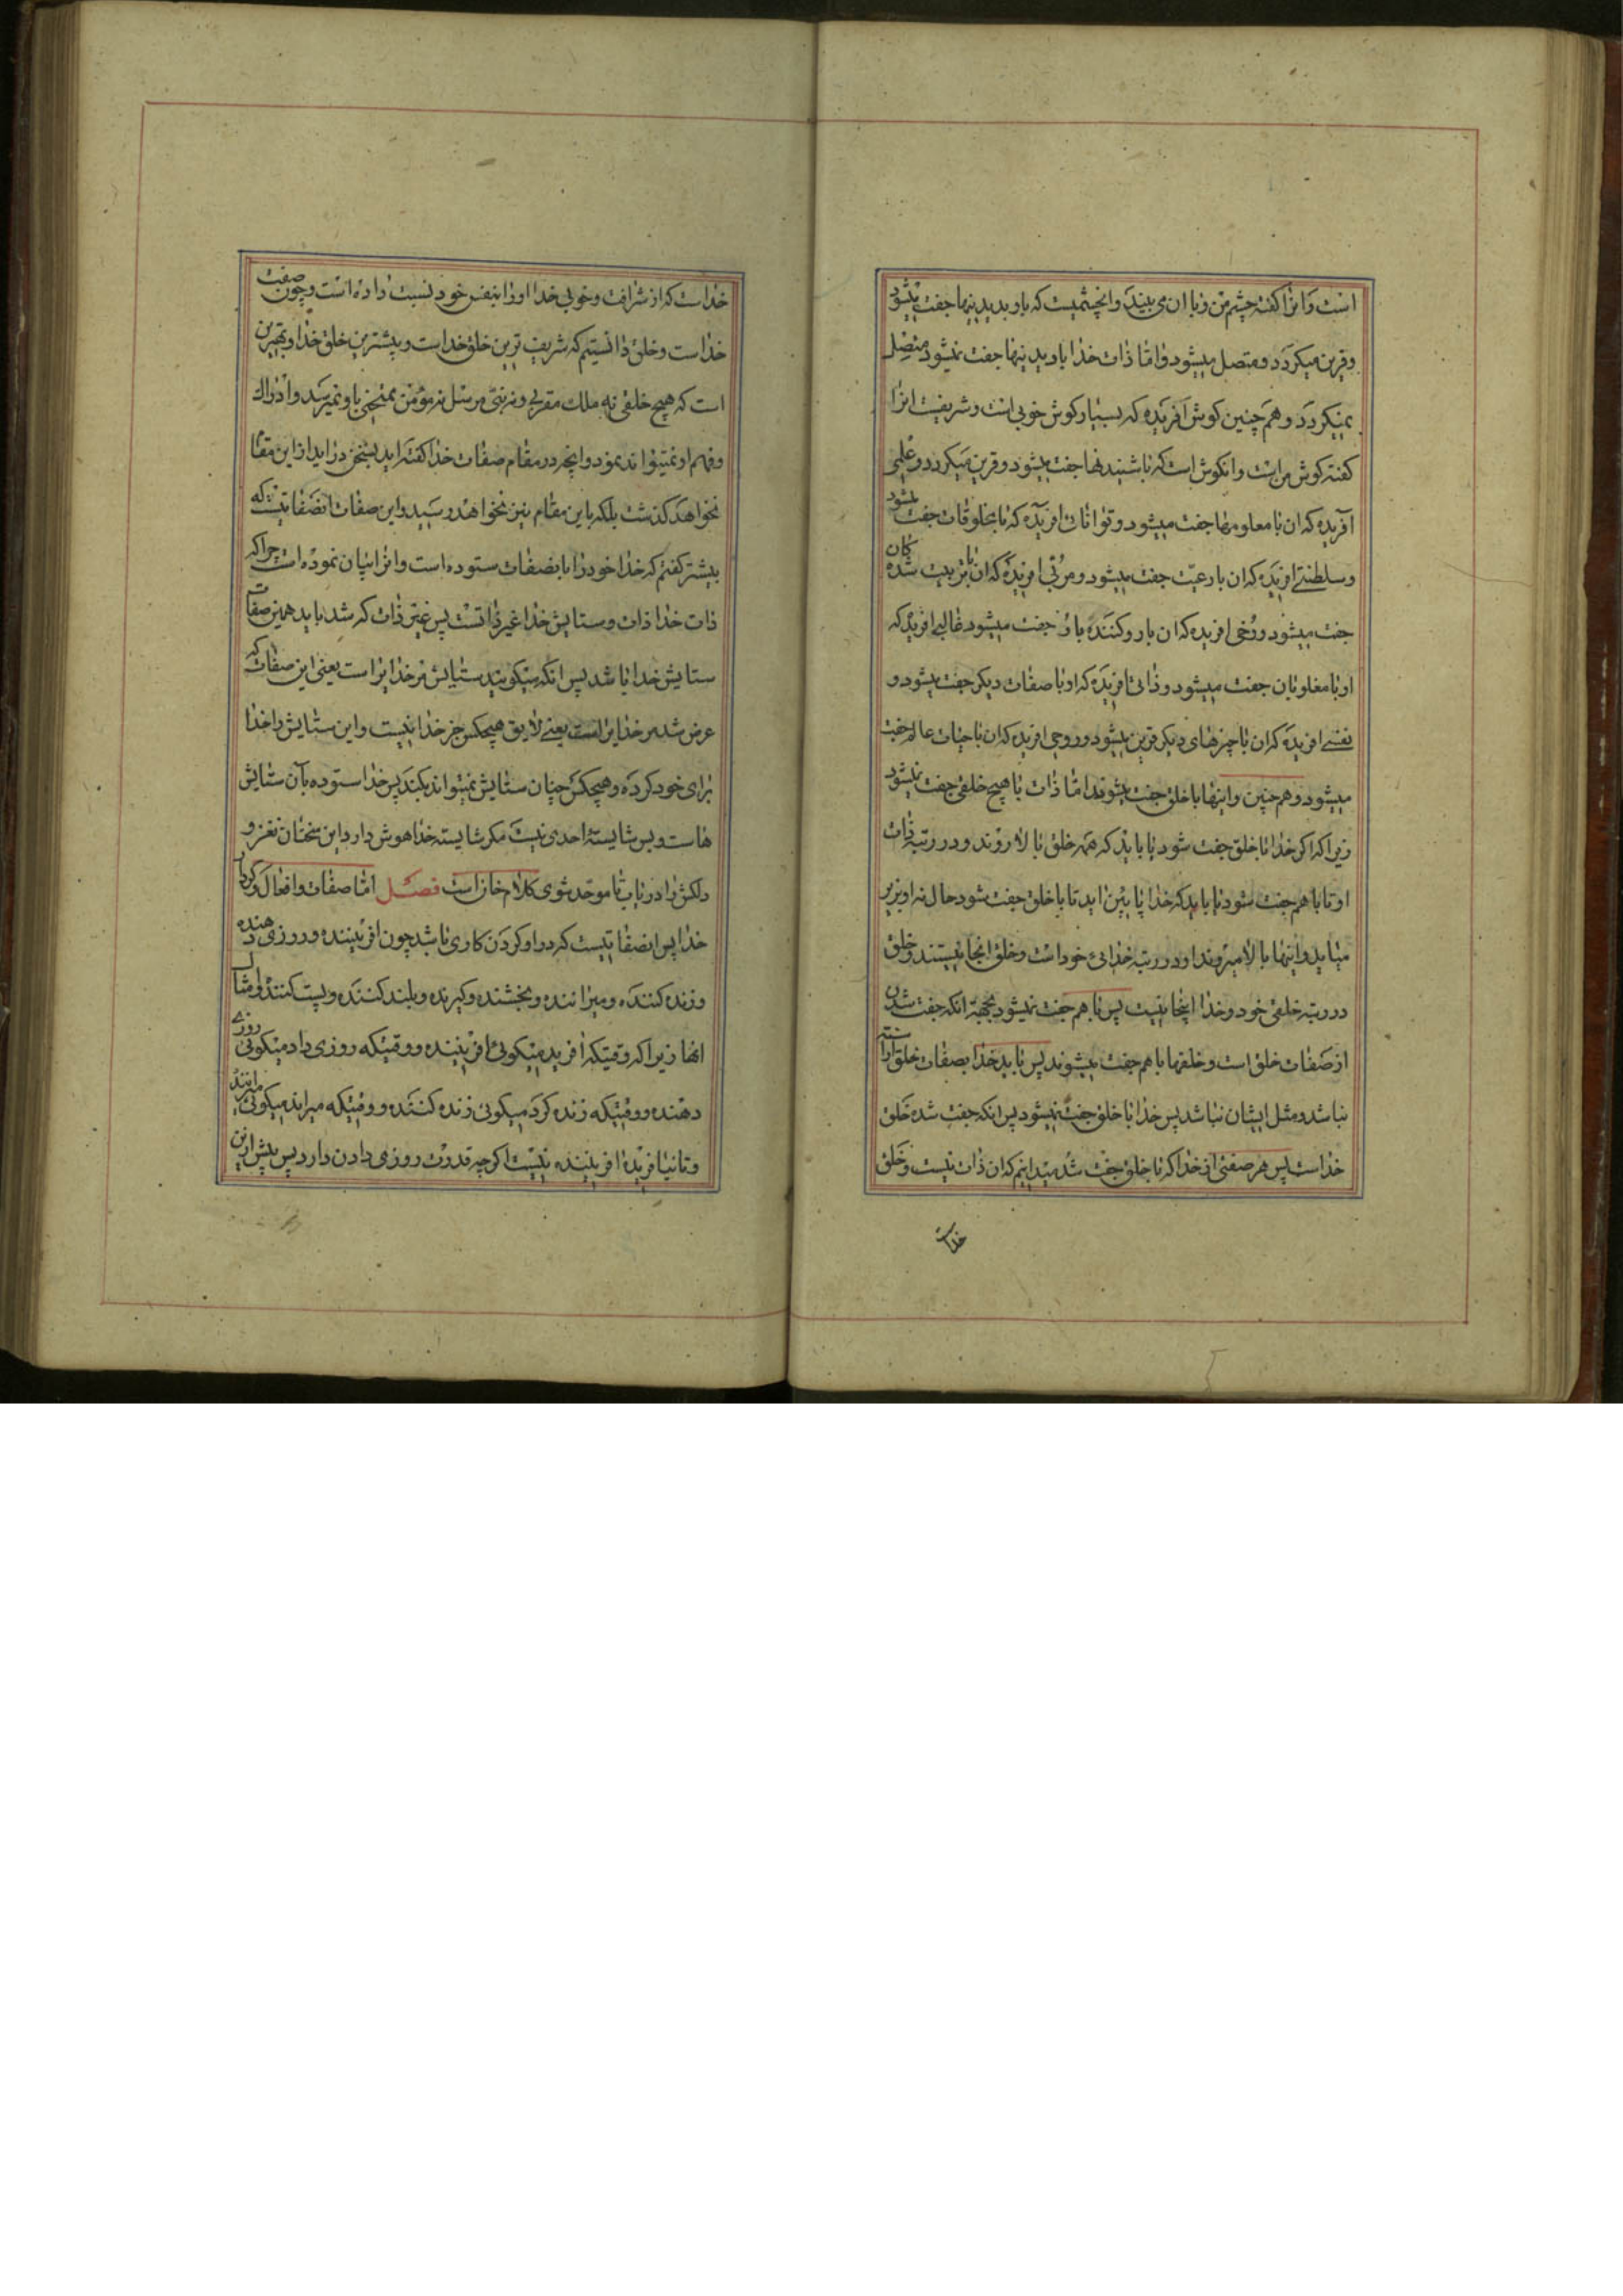 است و انرا کفته چشم من و با ان می بیند و انچشمیست که باو بدیدنیها جفت میشود
و قرین میکردد و متصل میشود و امّا ذات خدا با دیدنیها جفت نمیشود متصل
نمیکردد و همچنین کوش افریده که بسیار کوش خوبی است و شریفیست انرا
کفته کوش من است و انکوش است که با شنیدنها جفت میشود و قرین میکردد و علمی
آفریده که ان با معلومها جفت میشود و توانائی افریده که با مخلوقات جفت میشود
و سلطنتی افریده که ان با رعیّت جفت میشود و مربّی افریده که ان با تربیت شده کان
جفت میشود و رخی افریده که ان با رو کننده باو جفت میشود غالبی افریده که
او با مغلوبان جفت میشود و ذاتی افریده که او با صفات دیکر جفت میشود و
نفسی افریده که ان با چیزهای دیکر قرین میشود و روحی افریده که ان با حیات عالم جفت
میشود و همچنین و اینها با خلق جفت میشوند امّا ذات با هیچ خلقی جفت نمیشود
زیرا که اکر خدا با خلق جفت شود یا باید که همه خلق بالا روند و در رتبه ذات
او تا با هم جفت شود یا باید که خدا پایین اید تا با خلق جفت شود حال نه او بزیر
میاید و اینها بالا میروند او در رتبه خدائی خود است و خلق انجا نیستند و خلق
در رتبه خلقی خود و خدا اینجا نیست پس با هم جفت نمیشود بجهة انکه جفت شدن
از صفات خلق است و خلقها با هم جفت میشوند پس باید خدا بصفات خلق اراسته
نباشد و مثل ایشان نباشد پس خدا با خلق جفت نمیشود پس انکه جفت شده خلق
خداست پس هر صفتی از خدا که با خلق جفت شد میدانیم که ان ذات نیست و خلق
خداست
خداست که از شرافت و خوبی خدا او را بنفس خود نسبت داده است و چون صفت
خداست و خلق دانستیم که شریف ترین خلق خداست و پیشترین خلق خدا و بهترین
است که هیچ خلقی نه ملك مقربی و نه نبیّ مرسل نه مؤمن ممتحنی باو نمیرسد و ادراك
و فهم او نمیتواند نمود و انچه در مقام صفات خدا کفته اید بسخن دراید از این مقام
نخواهد کذشت بلکه باین مقام نیز نخواهد رسید و این صفات انصفاتیست که
پیشتر کفتم که خدا خود را بانصفات ستوده است و انرا بیان نموده است چرا که
ذات خدا ذات و ستایش خدا غیر ذاتست پس غیر ذات که شد باید همین صفات
ستایش خدا باشد پس انکه میکویند ستایش مر خدایراست یعنی این صفات که
عرض شد مر خدایراست یعنی لایق هیچکس جز خدا نیست و این ستایش را خدا
برای خود کرده و هیچکس چنان ستایش نمیتواند بکند پس خدا ستوده بآن ستایش
هاست و بس شایستۀ احدی نیست مکر شایسته خدا هوش دار و این سخنان نغز و
دلکش را دریاب تا موحّد شوی کلام خازاست فصل امّا صفات و افعال و کردار
خدا پس انصفاتیست که در او کردن کاری باشد چون افریننده و روزی دهنده
و زنده کننده و میراننده و بخشنده و کیرنده و بلند کننده و پست کننده و امثال
انها زیرا که وقتیکه افرید میکوئی افریننده و وقتیکه روزی داد میکوئی روزی
دهنده و وقتیکه زنده کرد میکوئی زنده کننده و وقتیکه میراند میکوئی میراننده
و تا نیافریده افریننده نیست اکرچه قدرت روزی دادن دارد پس پیش از این